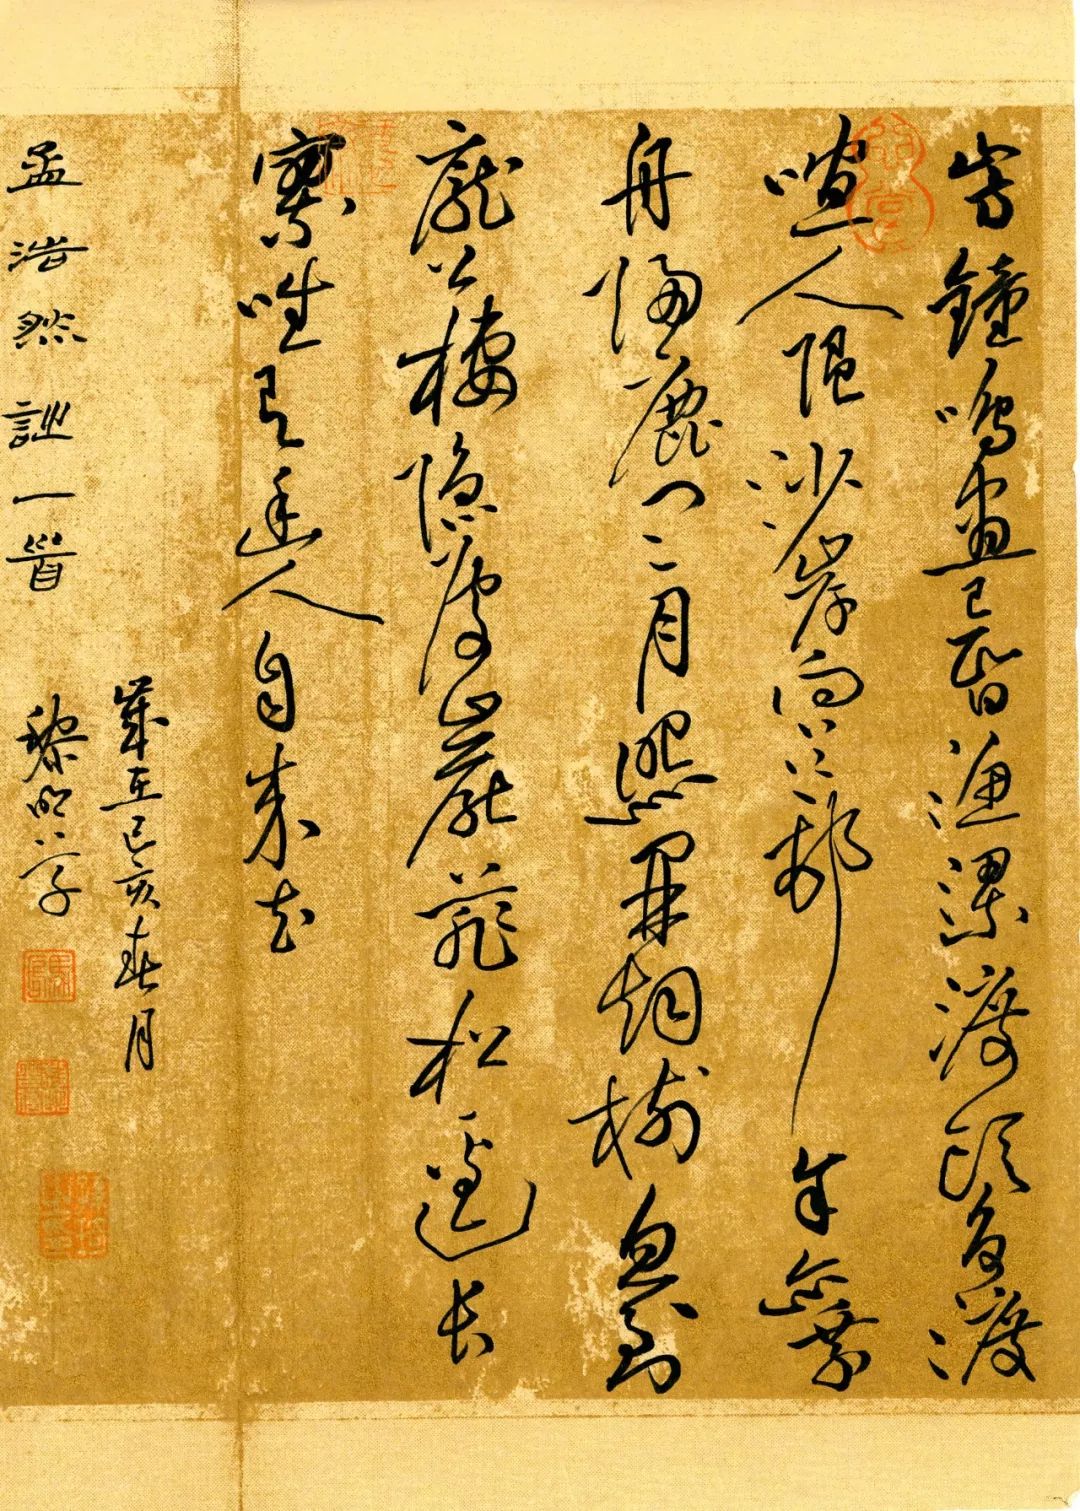 山寺鐘鳴晝已昏漁梁渡頭爭渡
喧人隨沙岸向江村余亦乘
舟歸鹿門〻〻月照開烟樹忽到
龐公棲隱處巖扉松逕长
寥唯有幽人自来去
歲在己亥春月
孟浩然詩一首 黎明字